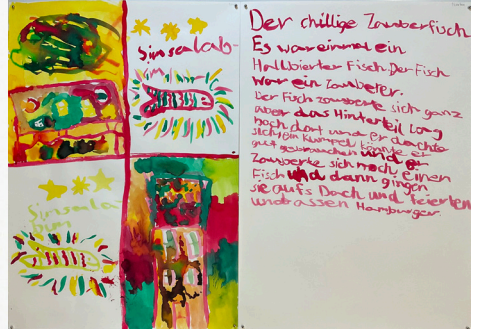 Simsalab-
im
Simsala-
bim
Der chillige Zauberfisch
Es war einmal ein
Halbbierter Fisch. Der Fisch
war ein Zauberer.
Der Fisch zauberte sich ganz
aber das Hinterteil lag
noch dort und er dachte
sich ein Kumpel könnte er
gut gebrauchen und er
Zauberte sich noch einen
Fisch und dann gingen
sie aufs Dach und feierten
und assen Hamburger.